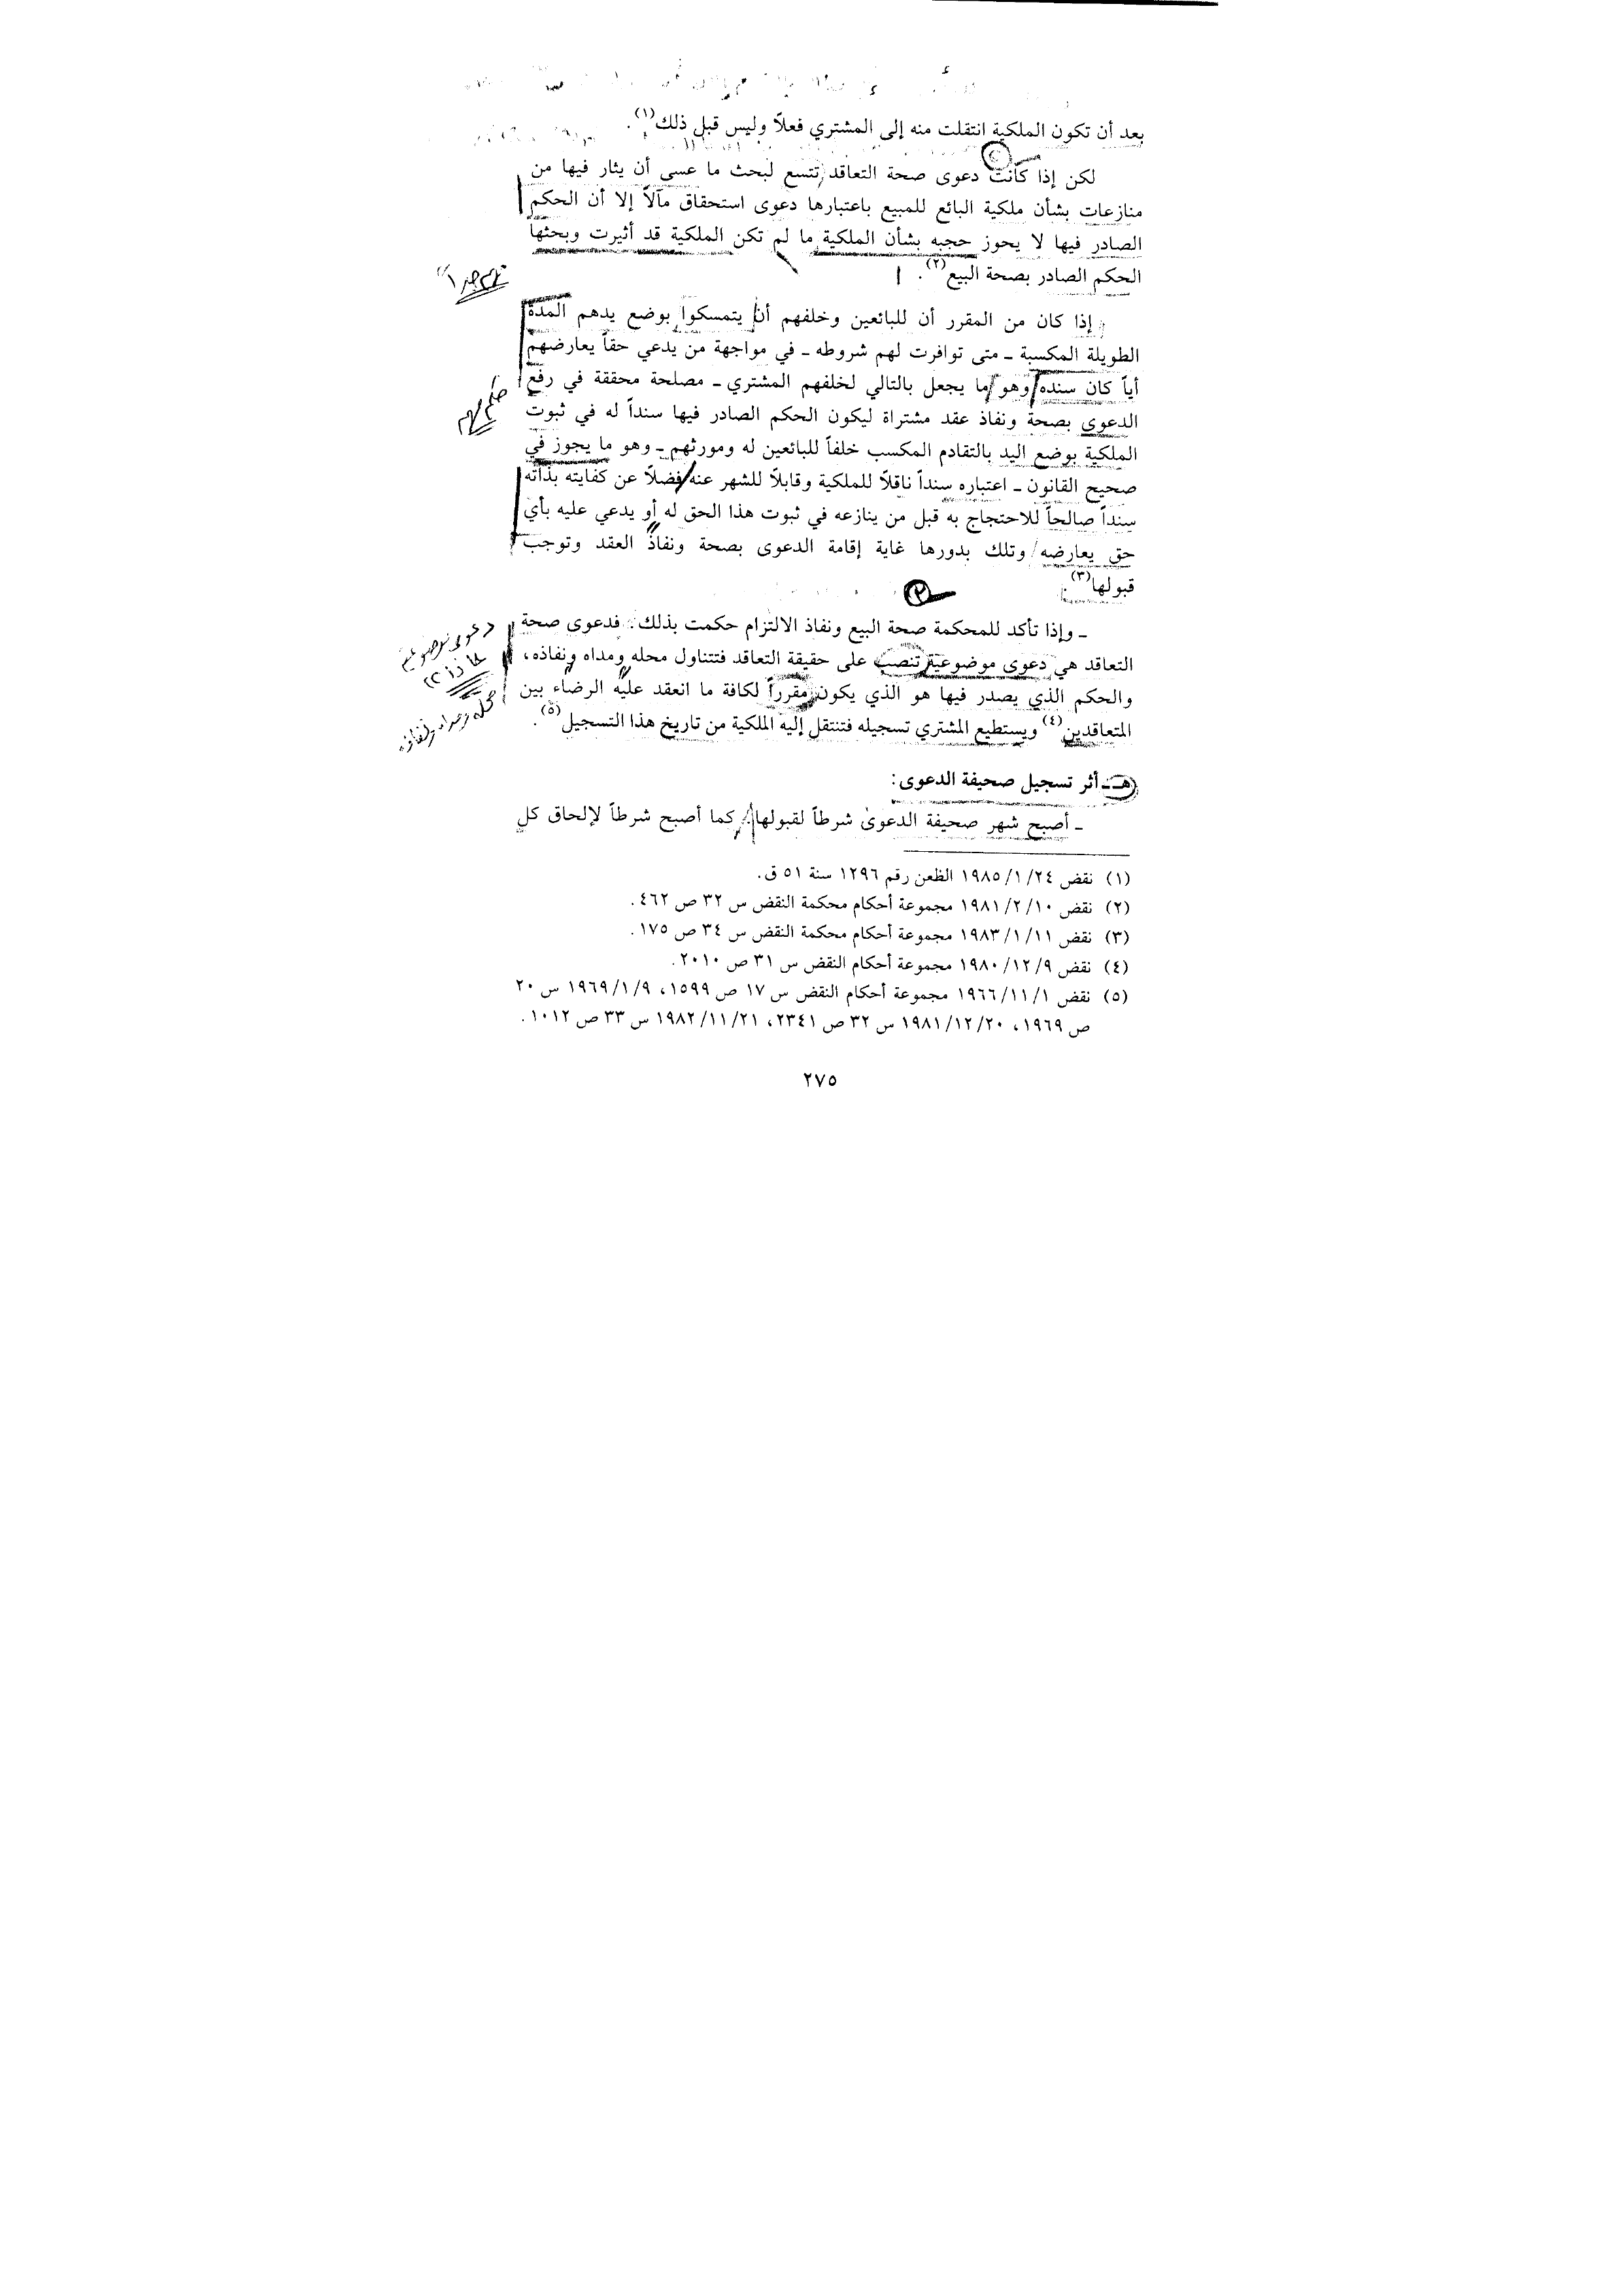 بعد أن تكون الملكية انتقلت منه إلى المشتري فعلاً وليس قبل ذلك(١).
لكن إذا كانت دعوى صحة التعاقد تتسع لبحث ما عسى أن يثار فيها من
منازعات بشأن ملكية البائع للمبيع باعتبارها دعوى استحقاق مآلاً إلا أن الحكم
الصادر فيها لا يحوز حجبه بشأن الملكية ما لم تكن الملكية قد أثيرت وبحثها
الحكم الصادر بصحة البيع(٢).
إذا كان من المقرر أن للبائعين وخلفهم أن يتمسكوا بوضع يدهم المدة
الطويلة المكسبة ـ متى توافرت لهم شروطه ـ في مواجهة من يدعي حقاً يعارضهم
أياً كان سنده وهو ما يجعل بالتالي لخلفهم المشتري ـ مصلحة محققة في رفع
الدعوى بصحة ونفاذ عقد مشتراة ليكون الحكم الصادر فيها سنداً له في ثبوت
الملكية بوضع اليد بالتقادم المكسب خلفاً للبائعين له ومورثهم ـ وهو ما يجوز في
صحيح القانون ـ اعتباره سنداً ناقلاً للملكية وقابلاً للشهر عنه فضلاً عن كفايته بذاته
سنداً صالحاً للاحتجاج به قبل من ينازعه في ثبوت هذا الحق له أو يدعي عليه بأي
حق يعارضه وتلك بدورها غاية إقامة الدعوى بصحة ونفاذ العقد وتوجب
قبولها(٣).
ـ وإذا تأكد للمحكمة صحة البيع ونفاذ الالتزام حكمت بذلك. فدعوى صحة
التعاقد هي دعوى موضوعية تنصب على حقيقة التعاقد فتتناول محله ومداه ونفاذه،
والحكم الذي يصدر فيها هو الذي يكون مقرراً لكافة ما انعقد عليه الرضاء بين
المتعاقدين(٤) ويستطيع المشتري تسجيله فتنتقل إليه الملكية من تاريخ هذا التسجيل(٥).
هـ ـ أثر تسجيل صحيفة الدعوى:
ـ أصبح شهر صحيفة الدعوى شرطاً لقبولها، كما أصبح شرطاً لإلحاق كل
(١) نقض ١٩٨٥/١/٢٤ الطعن رقم ١٢٩٦ سنة ٥١ ق.
(٢) نقض ١٩٨١/٢/١٠ مجموعة أحكام محكمة النقض س ٣٢ ص ٤٦٢.
(٣) نقض ١٩٨٣/١/١١ مجموعة أحكام محكمة النقض س ٣٤ ص ١٧٥.
(٤) نقض ١٩٨٠/١٢/٩ مجموعة أحكام النقض س ٣١ ص ٢٠١٠.
(٥) نقض ١٩٦٦/١١/١ مجموعة أحكام النقض س ١٧ ص ١٥٩٩، ١٩٦٩/١/٩ س ٢٠
ص ١٩٦٩، ١٩٨١/١٢/٢٠ س ٣٢ ص ٢٣٤١، ١٩٨٢/١١/٢١ س ٣٣ ص ١٠١٢.
٢٧٥